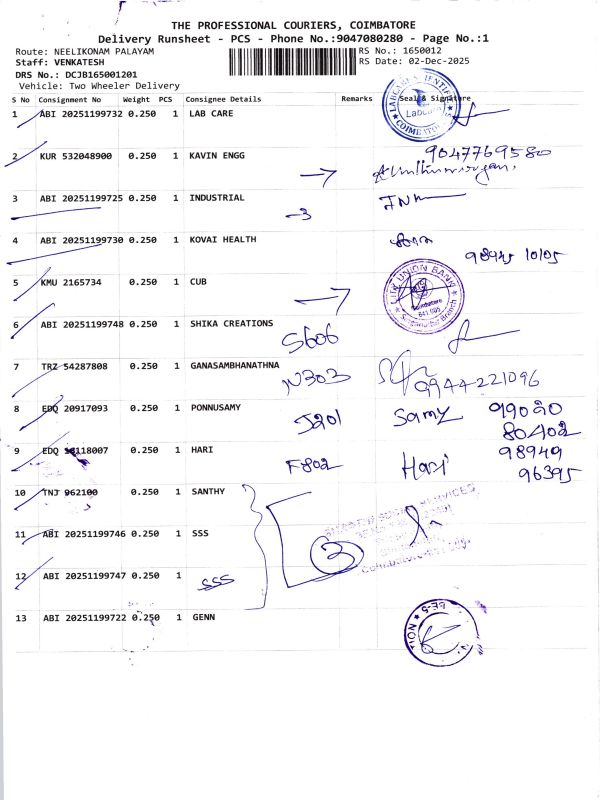 THE PROFESSIONAL COURIERS, COIMBATORE
Delivery Runsheet - PCS - Phone No.:9047080280 - Page No.:1
Route: NEELIKONAM PALAYAM RS No.: 1650012
Staff: VENKATESH RS Date: 02-Dec-2025
DRS No.: DCJB165001201
Vehicle: Two Wheeler Delivery
S No Consignment No Weight PCS Consignee Details Remarks Seal & Signature
1 ABI 20251199732 0.250 1 LAB CARE
Labcare
2 KUR 532048900 0.250 1 KAVIN ENGG 9047769580
3 ABI 20251199725 0.250 1 INDUSTRIAL
-3
4 ABI 20251199730 0.250 1 KOVAI HEALTH
98945 10105
5 KMU 2165734 0.250 1 CUB
CITY UNION BANK
Coimbatore
6 ABI 20251199748 0.250 1 SHIKA CREATIONS
S606
7 TRZ 54287808 0.250 1 GANASAMBHANATHNA
N303 9944221096
8 EDQ 20917093 0.250 1 PONNUSAMY
J201 Samy 99020
80402
9 EDQ 118007 0.250 1 HARI 98949
F802 Hari 96395
10 TNJ 962100 0.250 1 SANTHY
SHANTHI SOCIAL SERVICES
11 ABI 20251199746 0.250 1 SSS
3
12 ABI 20251199747 0.250 1
SSS
13 ABI 20251199722 0.250 1 GENN